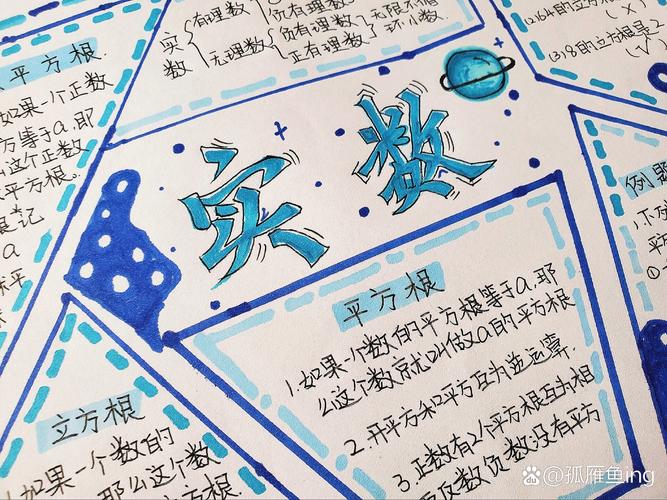 实数
有理数
无理数
负有理数
负有理数 无限不循
正有理数 环小数.
(2)64的立方根是
(×)
(3)8的立方根是2
(√)
平方根
如果一个正数
方等于a.那
么这个正数
平方根.
记
a
实数
平方根
1.如果一个数的平方根等于a.那
么这个数就叫做a的平方根
2.开平方和平方互为逆运算.
3.正数有2个平方根互为相
反数负数没有平方
立方根
如果一个数的
那么这个数
例题
平方
①
@孤雁鱼ing